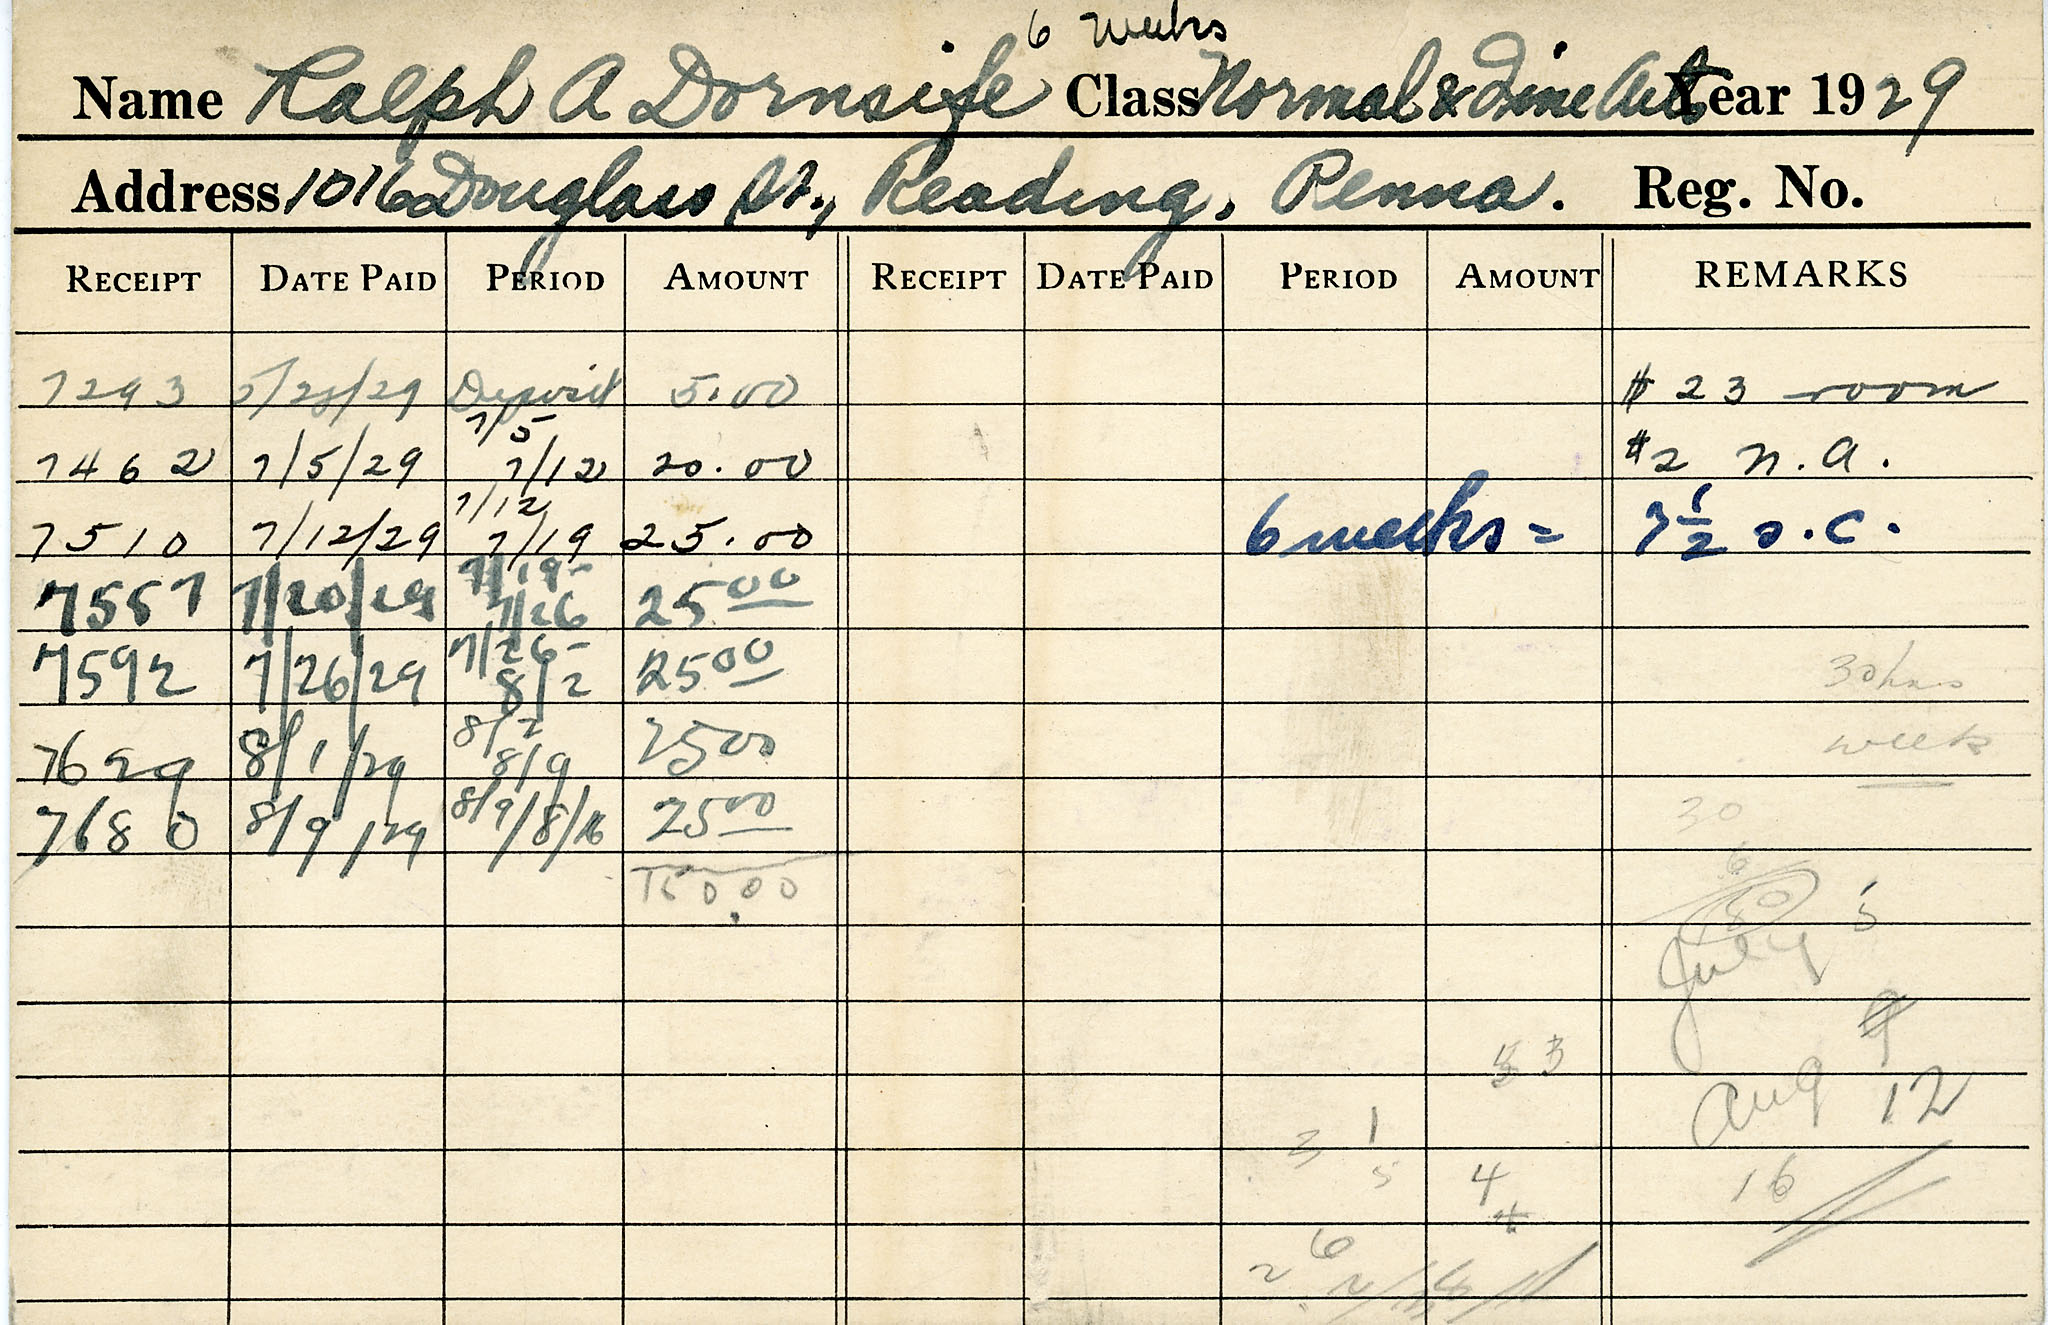 6 weeks
Name Ralph A Dornsife Class Normal & Fine Arts Year 1929
Address 1016 Douglass St., Reading, Penna. Reg. No.
RECEIPT DATE PAID PERIOD AMOUNT RECEIPT DATE PAID PERIOD AMOUNT REMARKS
7293 5/28/29 Deposit 5.00 $23 room
7/5
7462 7/5/29 7/12 20.00 $2 n.a.
7/12
7510 7/12/29 7/19 25.00 6 weeks = 7 1/2 s.c.
7/19-
7557 7/20/29 7/26 25 00
7/26-
7592 7/26/29 8/2 25 00 30 hrs
8/2
7629 8/1/29 8/9 25 00 week
7680 8/9/29 8/9/8/16 25 00 30
6
150.00 180 5
July
9
53
Aug 12
3 1
5 4 16
6
2